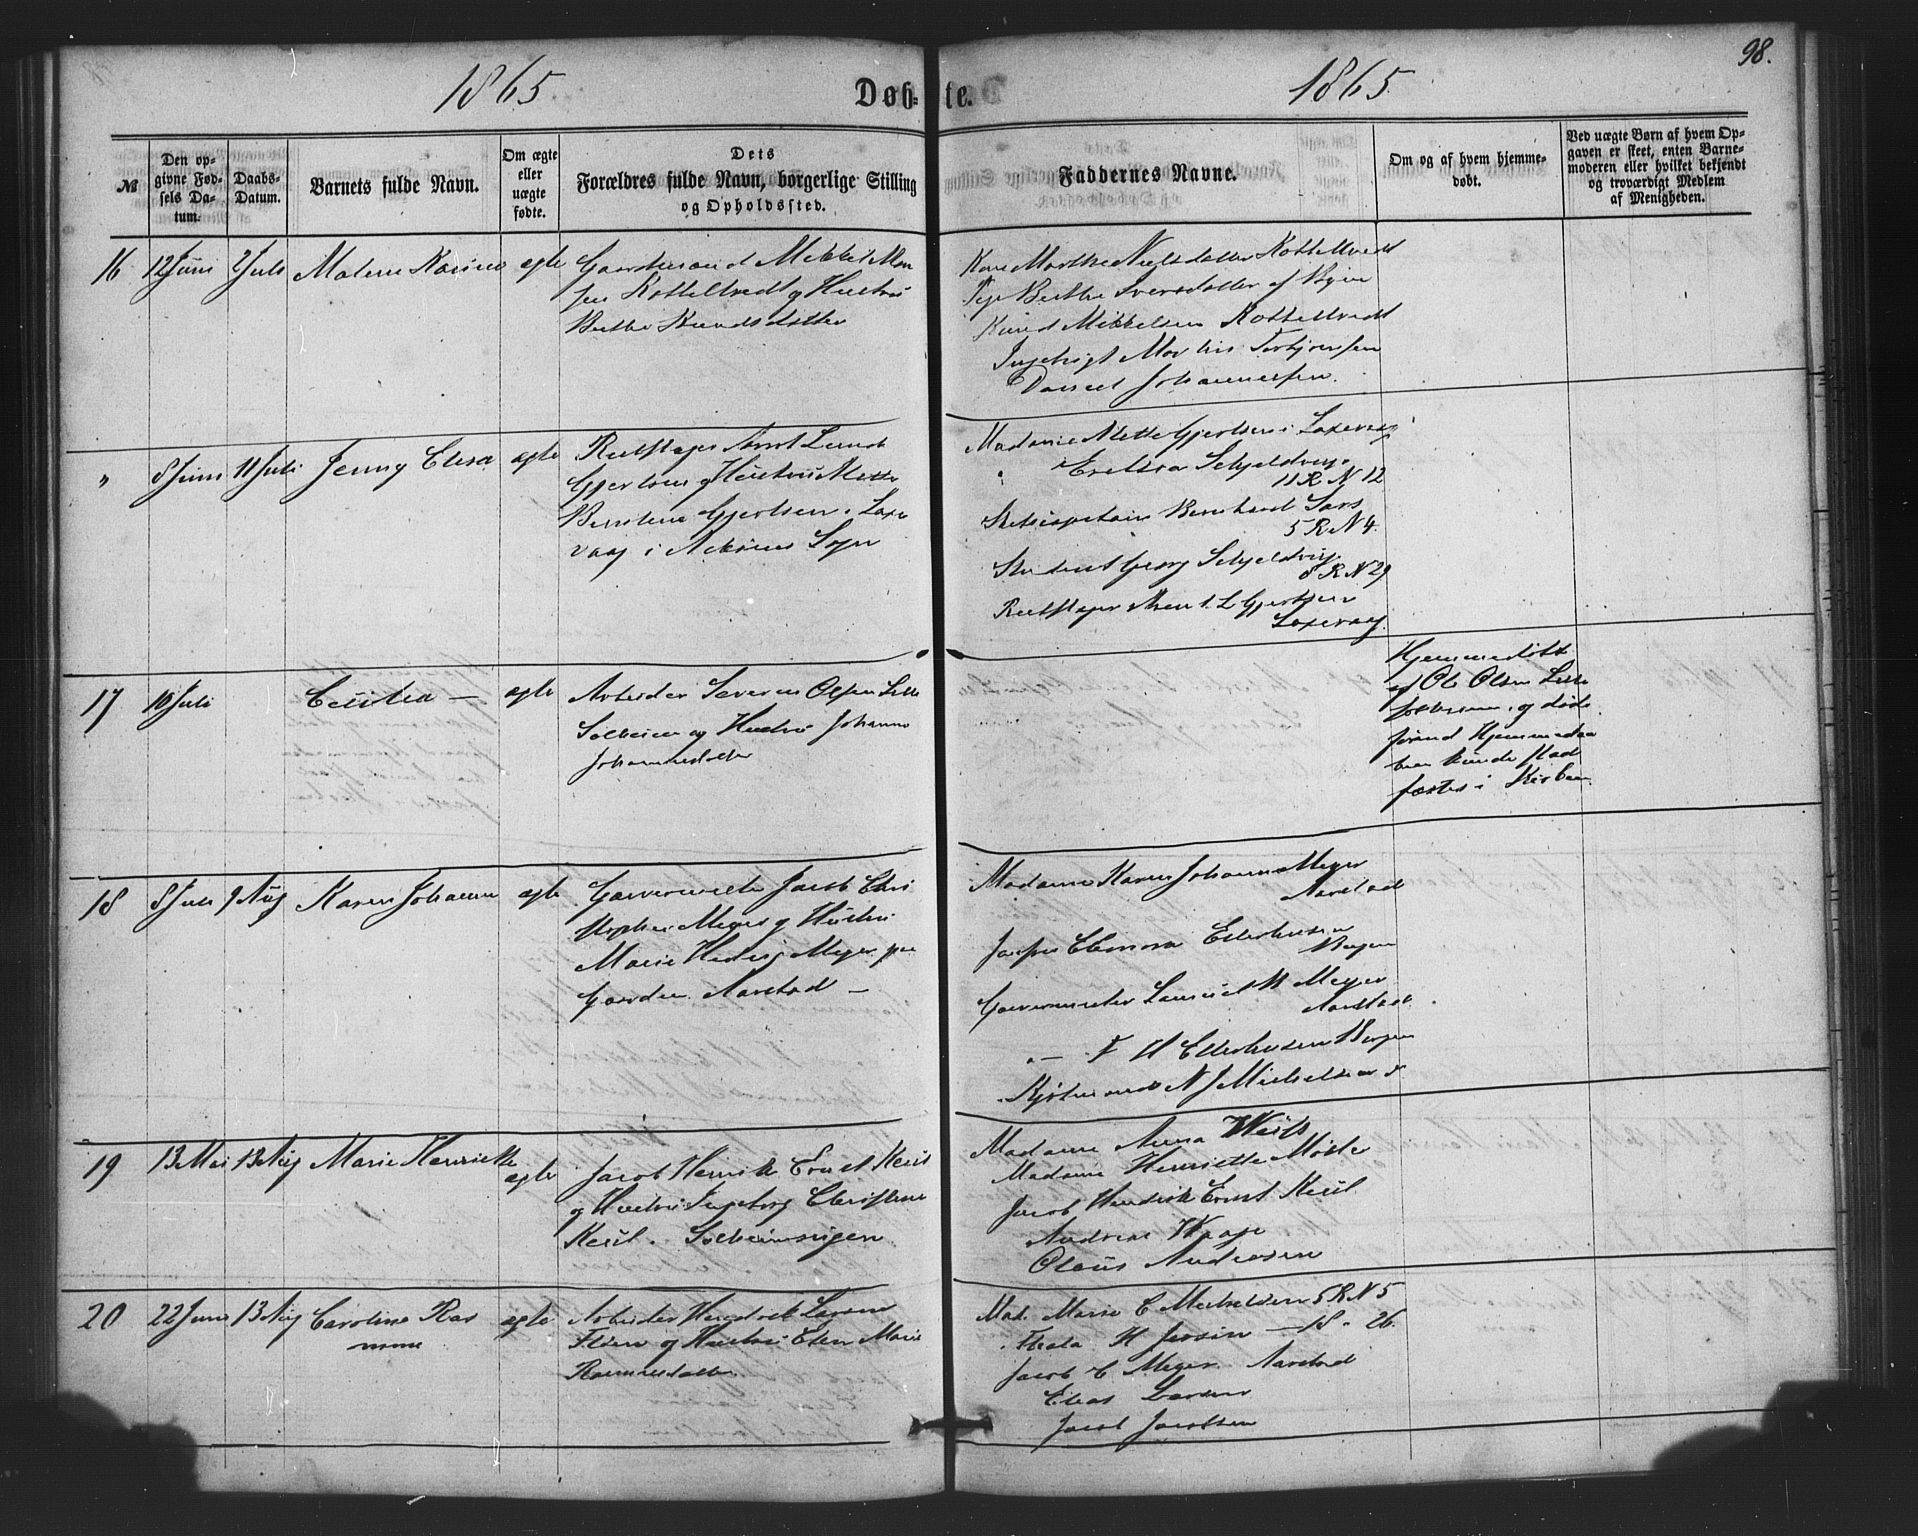 98.
1865
Døb-
te.
1865
№
Den op-
givne Fød-
sels Da-
tum.
Daabs-
Datum.
Barnets fulde Navn.
Om ægte
eller
uægte
fødte.
Dets
Forældres fulde Navn, borgerlige Stilling
og Opholdssted.
Faddernes Navne.
Om og af hvem hjemme-
døbt.
Ved uægte Børn af hvem Op-
gaven er skeet, enten Barne-
moderen eller hvilket bekjendt
og troværdigt Medlem
af Menigheden.
16 12 Juni 2 Juli Malene Karine ægte
Gaardmand Mikkel Mon
sen og Hustru
Berthe Knudsdatter
Kone Marthe Nielsdatter
Pige Berthe Sversdatter af
Knud Mikkelsen
Ingebrigt
Daniel Johannessen.
" 8 Juni 11 Juli Jenny Elisa ægte
Reebslager Arnt Lerndt
Gjertsen og Hustru Mette
Gjertsen i Laxe
vaag i Askøens Sogn
Madame Mette Gjertsen i Laxevaag
" Schjeldrup
11 R N 12
Skibscapitain Bernhard Sars
5 R N 4.
Student Georg Schjeldrup
8 R N 29
Reebslager L Gjertsen
Laxevaag.
17 10 Juli Cecilia — ægte
Arbeider Severin Olsen Lille
Solheim og Hustru Johanne
Johannesdatter
Hjemmedøbt
af Ole Olsen Lille
Solheim, og døde
førend Hjemmedaa
ben kunde stad
fæstes i Kirken.
18 8 Juli 9 Aug Karen Johanne ægte
Garvermester Jacob Chri
stopher Meyer og Hustru
Marie Hedevig Meyer paa
Gaarden Aarstad —
Madame Karen Johanne Meyer
Aarstad
Jomfru Elenora Ellerhusen
Bergen
Garvermester Meyer
Aarstad.
" — F H Ellerhusen Bergen
Kjøbmand N J Michelsen
19 13 Mai 13 Aug Marie Henriette ægte
Jacob Henrik Ernst Keil
og Hustru Ingeborg Christine
Keil. Solheimsvigen
Madame Anna
Madame Henriette
Jacob Hendrik Ernst Keil
Andreas
Olaus Andersen
20 22 Juni 13 Aug Caroline Ras
mine ægte
Arbeider Hendrik Larsen
og Hustru Elen Marie
Rasmusdatter
Mad. Marie C Michelsen 5 R N 5
H Jersin — 18 " 26.
Jacob C Meyer Aarstad
Elias Larsen
Jacob Jacobsen